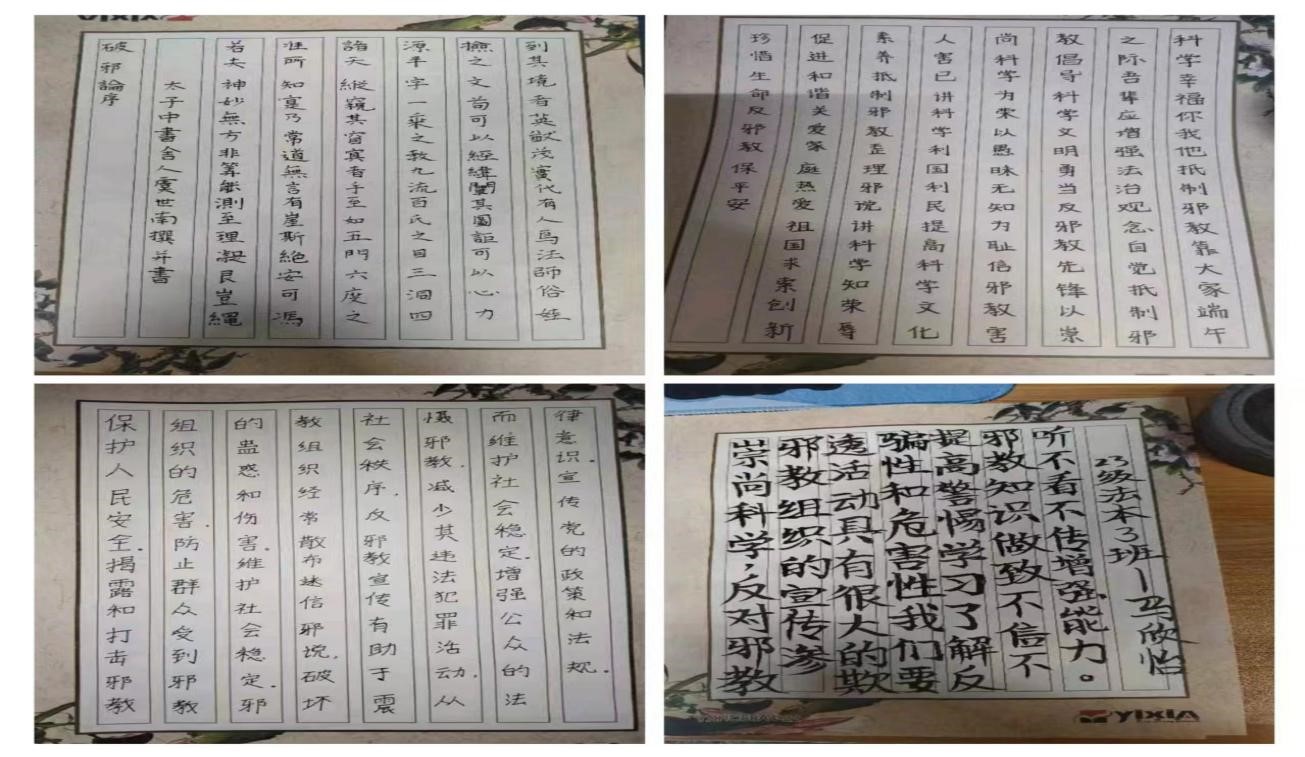 YIXIA
破邪論序
太子中書舍人虞世南撰并書
若夫神妙無方非筭能測至理凝艮豈繩
准所知寔乃常道無言有崖斯絶安可馮
諸天縱窺其窅冥者乎至如五門六度之
源半字一乘之教九流百氏之目三洞四
撿之文苟可以經緯闡其圖詎可以心力
到其境者英猷茂實代有人焉法師俗姓
科学幸福你我他抵制邪教靠大家端午
之际吾辈应增强法治观念自觉抵制邪
教倡导科学文明勇当反邪教先锋以崇
尚科学为荣以愚昧无知为耻信邪教害
人害己讲科学利国利民提高科学文化
素养抵制邪教歪理邪说讲科学知荣辱
促进和谐关爱家庭热爱祖国求索创新
珍惜生命反邪教保平安
保护人民安全.揭露和打击邪教
组织的危害.防止群众受到邪教
的蛊惑和伤害.维护社会稳定.邪
教组织经常散布迷信邪说,破坏
社会秩序,反邪教宣传有助于震
慑邪教.减少其违法犯罪活动,从
而维护社会稳定.增强公众的法
律意识.宣传党的政策和法规.
崇尚科学,反对邪教
邪教组织的宣传渗
透活动具有很大的欺
骗性和危害性我们要
提高警惕学习了解反
邪教知识做致不信不
听不看不传增强能力。
23级法本3班—马欣怡
YIXIA